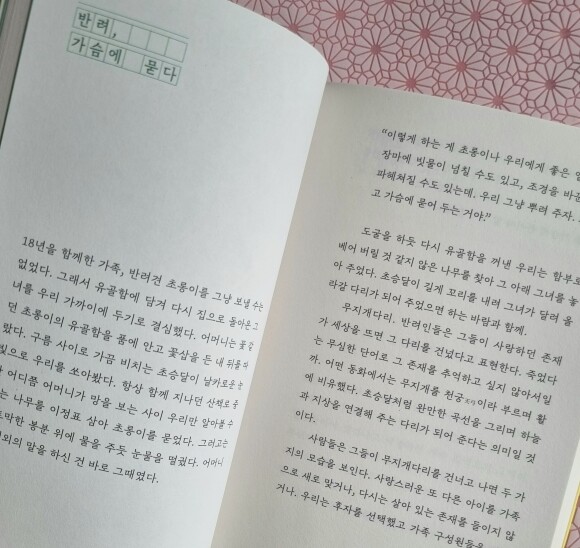 반려,
가슴에 묻다
18년을 함께한 가족, 반려견 초롱이를 그냥 보낼 수는
없었다. 그래서 유골함에 담겨 다시 집으로 돌아온 그
녀를 우리 가까이에 두기로 결심했다. 어머니는 꽃 같
던 초롱이의 유골함을 품에 안고 꽃삽을 든 내 뒤를 따
랐다. 구름 사이로 가끔 비치는 초승달이 날카로운 눈
빛으로 우리를 쏘아봤다. 항상 함께 지나던 산책로 중
어디쯤 어머니가 망을 보는 사이 우리만 알아볼 수
는 나무를 이정표 삼아 초롱이를 묻었다. 그러고는
토막한 봉분 위에 물을 주듯 눈물을 떨궜다. 어머니
의외의 말을 하신 건 바로 그때였다.
“이렇게 하는 게 초롱이나 우리에게 좋은
장마에 빗물이 넘칠 수도 있고, 조경을 바꾼
파헤쳐질 수도 있는데. 우리 그냥 뿌려 주자.
고 가슴에 묻어 두는 거야.”
도굴을 하듯 다시 유골함을 꺼낸 우리는 함부로
베어 버릴 것 같지 않은 나무를 찾아 그 아래 그녀를 놓
아 주었다. 초승달이 길게 꼬리를 내려 그녀가 달려 올
라갈 다리가 되어 주었으면 하는 바람과 함께.
무지개다리. 반려인들은 그들이 사랑하던 존재
가 세상을 뜨면 그 다리를 건넜다고 표현한다. 죽었다
는 무심한 단어로 그 존재를 추억하고 싶지 않아서일
까. 어떤 동화에서는 무지개를 천궁이라 부르며 활
에 비유했다. 초승달처럼 완만한 곡선을 그리며 하늘
과 지상을 연결해 주는 다리가 되어 준다는 의미일 것
이다.
사람들은 그들이 무지개다리를 건너고 나면 두 가
지의 모습을 보인다. 사랑스러운 또 다른 아이를 가족
으로 새로 맞거나, 다시는 살아 있는 존재를 들이지 않
거나. 우리는 후자를 선택했고 가족 구성원들은